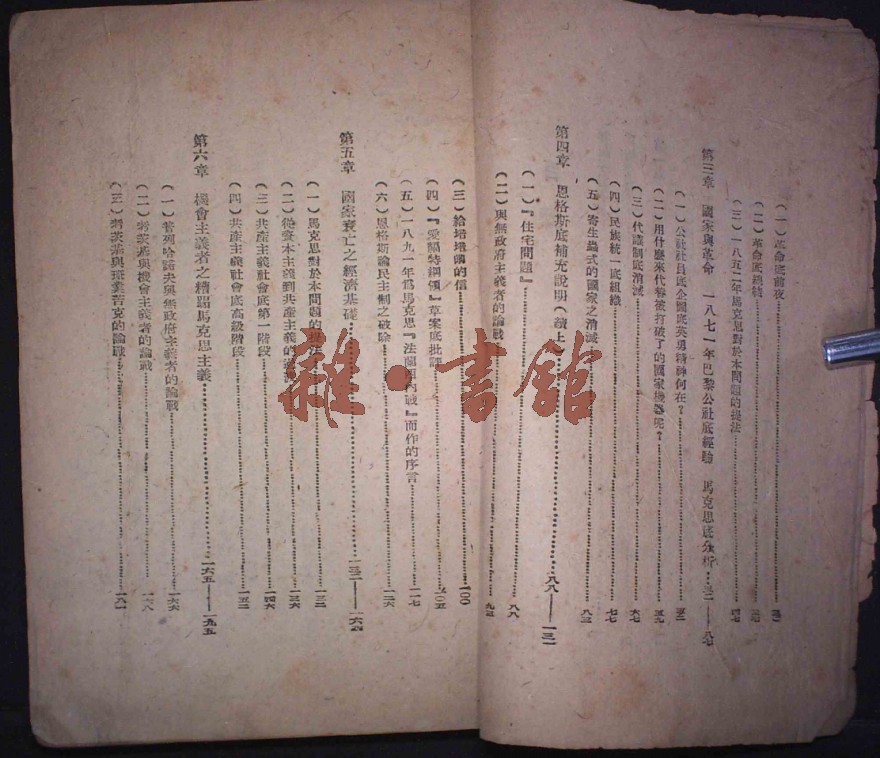 （一）革命底前夜
（二）革命底總結
（三）一八五二年馬克思對於本問題的提法
第三章　國家與革命　一八七一年巴黎公社底經驗　馬克思底分析
（一）公社社員底企圖底英勇精神何在？
（二）用什麽來代替被打破了的國家機器呢？
（三）代議制底消滅 六七
（四）民族統一底組織 七七
（五）寄生蟲式的國家之消滅 八三
第四章　恩格斯底補充說明（續上 八八——一三一
（一）『住宅問題』 八八
（二）與無政府主義者的論戰
（三）給培培爾的信 一〇〇
（四）『愛爾特綱領』草案底批評 一〇五
（五）一八九一年爲馬克思『法蘭西內戰』而作的序言 一一七
（六）恩格斯論民主制之破除 一二六
第五章　國家衰亡之經濟基礎 一三二——一六四
（一）馬克思對於本問題的提法 一三二
（二）從資本主義到共產主義的 一三六
（三）共產主義社會底第一階段 一四六
（四）共產主義社會底高級階段 一五二
第六章　機會主義者之糟蹋馬克思主義 一六五——一九五
（一）普列哈諾夫與無政府主義者的論戰 一六六
（二）考茨基與機會主義者的論戰 一六八
（三）考茨基與班業苦克的論戰 一八一
雜·書館